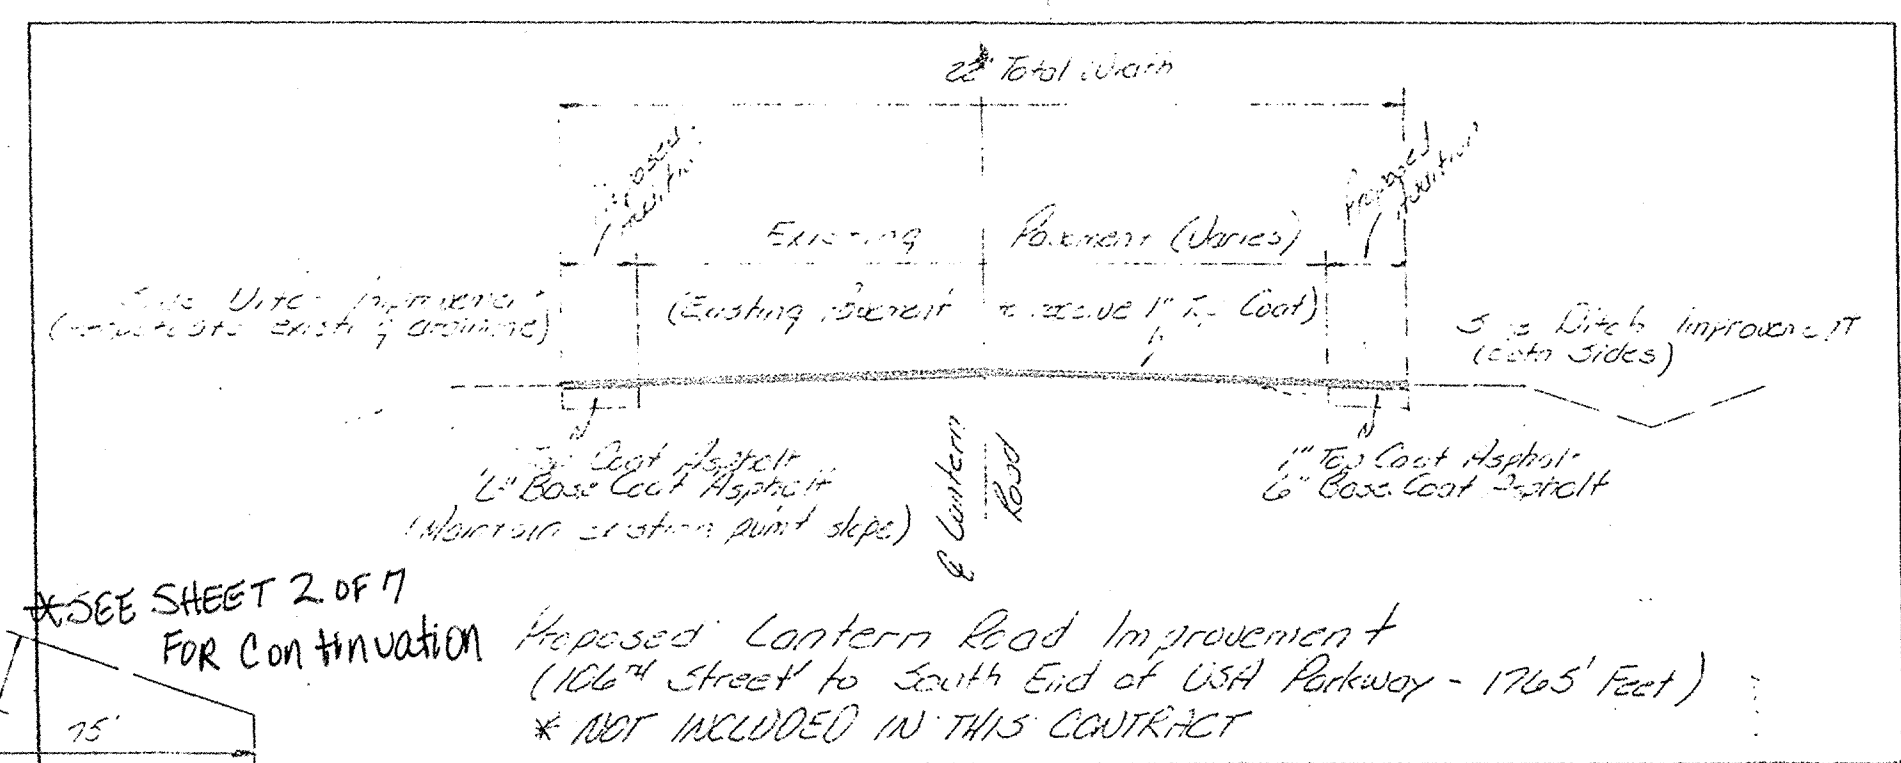 22' Total Width
Proposed
Addition
Proposed
Addition
Existing Pavement (Varies)
Side Ditch Improvement
(existing drainage)
(Existing pavement to receive 1" Top Coat)
Side Ditch Improvement
(both sides)
Top Coat Asphalt
6" Base Coat Asphalt
(Maintain pvmt slope)
℄ Lantern
Road
1" Top Coat Asphalt
6" Base Coat Asphalt
*SEE SHEET 2 OF 7
FOR Continuation
Proposed Lantern Road Improvement
(106TH Street to South End of USA Parkway - 1765' Feet)
* NOT INCLUDED IN THIS CONTRACT
75'